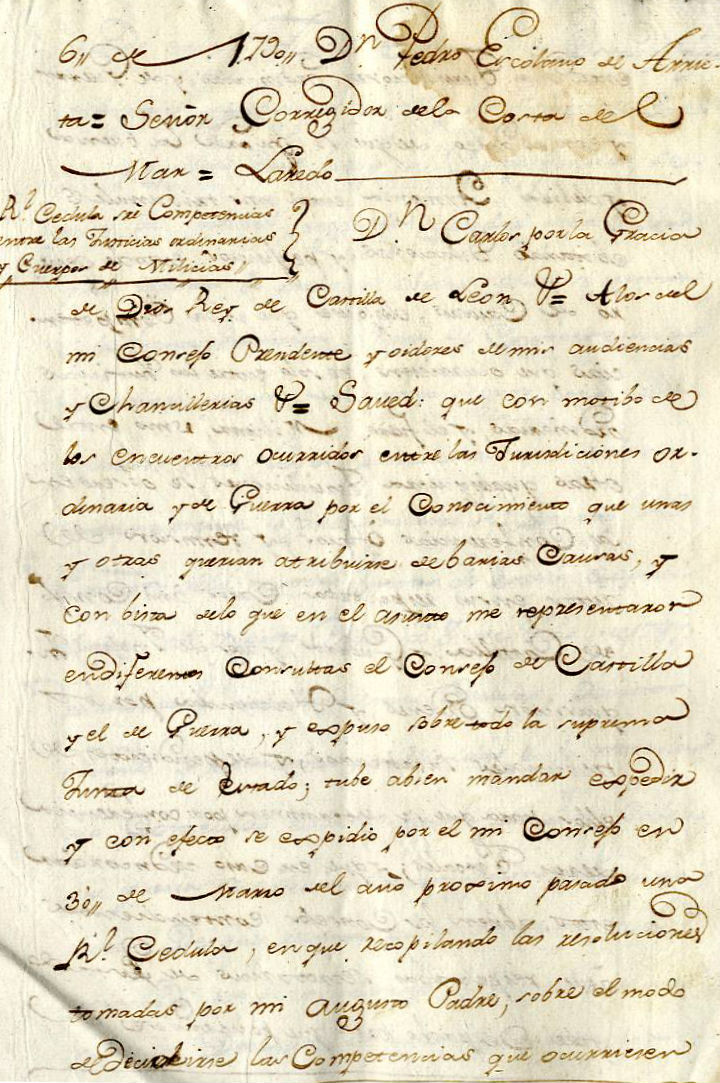 6,, de 1790,, Dn Pedro Escolano de Arrie-
ta = Señor Corregidor dela Costa del
Mar = Laredo
Rl. Cedula sre Competencias
entre las Justicias ordinarias
y Cuerpos de Milicias
Dn Carlos por la Gracia
de Dios Rey de Castilla de Leon &= Alos del
mi Consejo Presidente y oidores de mis audiencias
y Chancillerias &= Saved: que con motibo de
los encuentros ocurridos entre las Jurisdiciones or-
dinaria y de Guerra por el Conocimiento que unas
y otras querian atribuirse de barias Causas, y
con bista delo que en el asunto me representaron
en diferentes Consultas el Consejo de Castilla
y el de Guerra, y expuso sobre todo la suprema
Junta de Estado; tube abien mandar expedir
y con efecto se expidio por el mi Consejo en
30,, de Marzo del año proximo pasado una
Rl. Cedula, en que recopilando las resoluciones
tomadas por mi Augusto Padre, sobre el modo
de decidirse las Competencias que ocurriesen